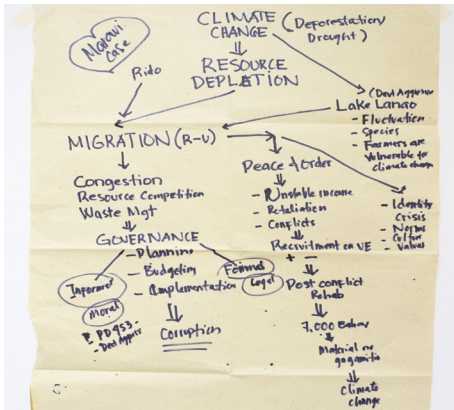 Marawi
Case
CLIMATE
CHANGE
(Deforestation/
Drought)
RESOURCE
DEPLATION
Rido
(Devt Aggression
Lake Lanao
- Fluctuation
- Species
- Farmers are
Vulnerable to
climate change
MIGRATION (R-U)
Congestion
Resource Competition
Waste Mgt
GOVERNANCE
- Planning
- Budgeting
- Implementation
Informal
Moral
PD 953 -
- Devt
Formal
Legal
Corruption
Peace & Order
- Unstable income
- Retaliation
- Conflicts
Recruitment on VE
+ -
Post conflict
Rehab
7,000
Material on
Climate
change
- Identity
Crisis
- Norms
- Culture
- Values